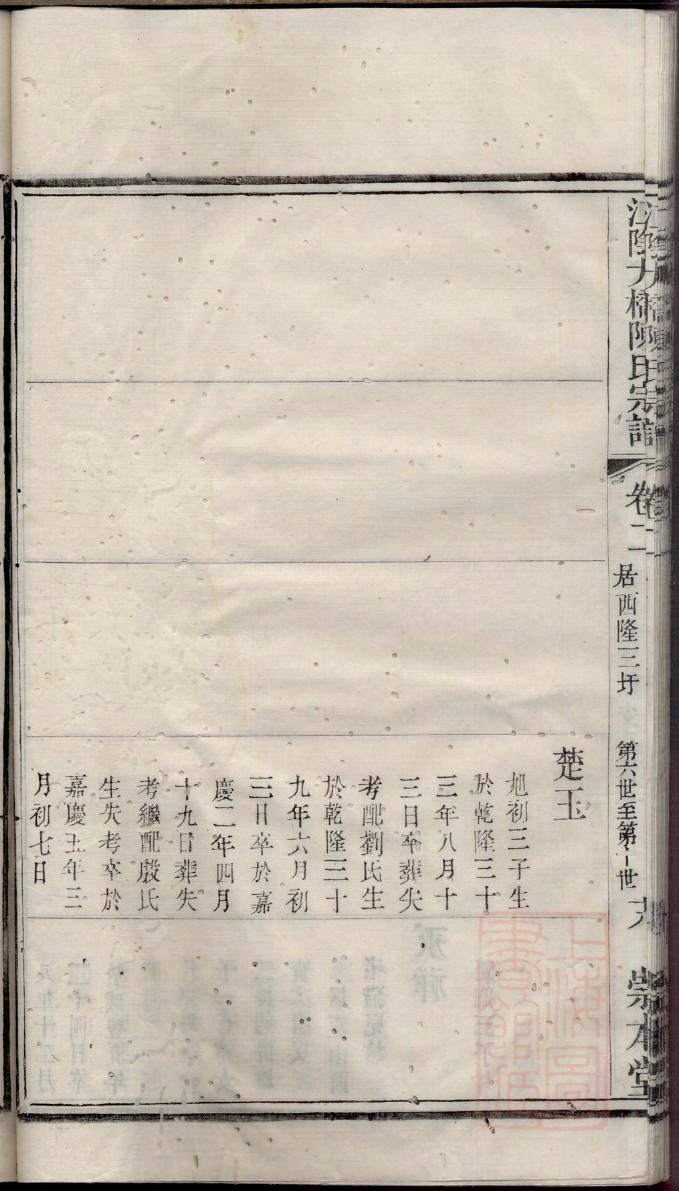 江陰大橋陳氏宗譜
卷二
居西隆三圩
第六世至第十世
崇本堂
楚玉
旭初三子生
於乾隆三十
三年八月十
三日卒葬失
考配劉氏生
於乾隆三十
九年六月初
三日卒於嘉
慶二年四月
十九日葬失
考繼配殷氏
生失考卒於
嘉慶五年三
月初七日
上海圖
書館藏